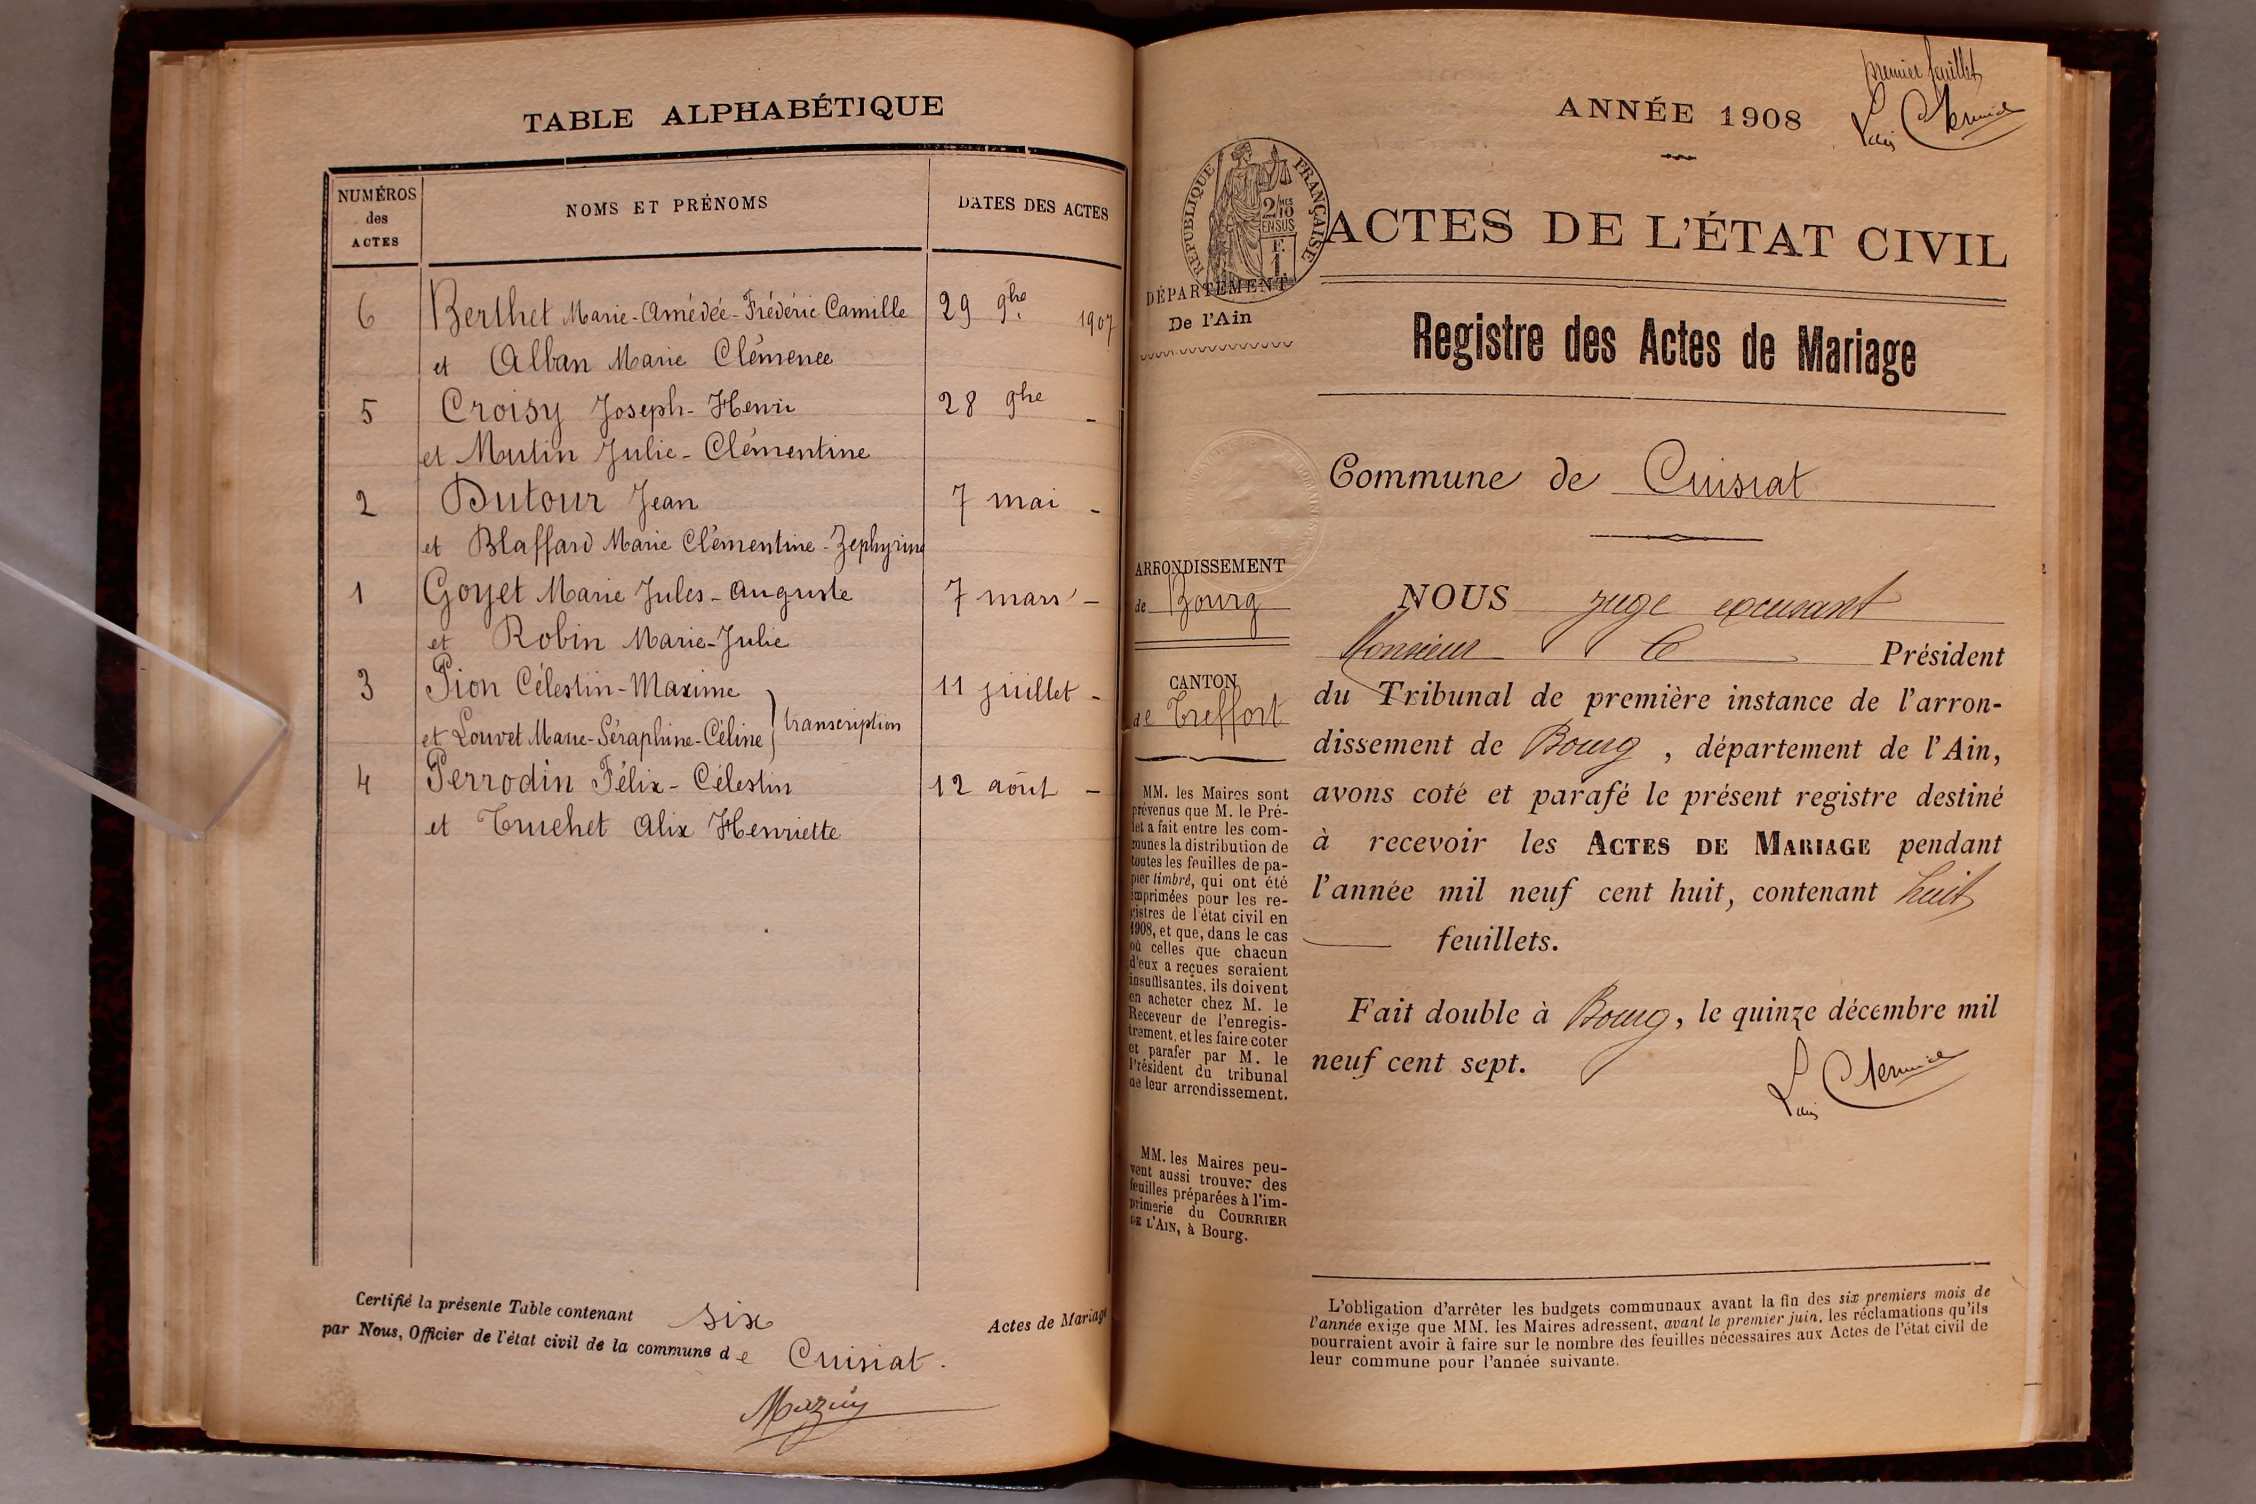 TABLE ALPHABÉTIQUE
NUMÉROS des ACTES
NOMS ET PRÉNOMS
DATES DES ACTES
6 Berthet Marie-Amédée-Frédéric Camille 29 9bre 1907
et Alban Marie Clémence
5 Croisy Joseph-Henri 28 9bre -
et Mutin Julie-Clémentine
2 Dutour Jean 7 mai -
et Blaffard Marie Clémentine-Zephyrine
1 Goyet Marie Jules-Auguste 7 mars -
et Robin Marie-Julie
3 Pion Célestin-Maxime 11 juillet -
et Louvet Marie-Séraphine-Céline } transcription
4 Perrodin Félix-Célestin 12 août -
et Truchet Alix Henriette
Certifié la présente Table contenant six Actes de Mariage
par Nous, Officier de l'état civil de la commune de Cuisiat.
Mazuy
premier feuillet
ANNÉE 1908
RÉPUBLIQUE FRANÇAISE
2/10 EN SUS
F. 1
ACTES DE L'ÉTAT CIVIL
DÉPARTEMENT
De l'Ain
Registre des Actes de Mariage
Commune de Cuisiat
ARRONDISSEMENT
de Bourg
CANTON
de Treffort
MM. les Maires sont
prévenus que M. le Pré-
fet a fait entre les com-
munes la distribution de
toutes les feuilles de pa-
pier timbré, qui ont été
imprimées pour les re-
gistres de l'état civil en
1908, et que, dans le cas
où celles que chacun
d'eux a reçues seraient
insuffisantes, ils doivent
en acheter chez M. le
Receveur de l'enregis-
trement, et les faire coter
et parafer par M. le
Président du tribunal
de leur arrondissement.
MM. les Maires peu-
vent aussi trouver des
feuilles préparées à l'im-
primerie du COURRIER
DE L'AIN, à Bourg.
NOUS juge excusant
Monsieur le Président
du Tribunal de première instance de l'arron-
dissement de Bourg, département de l'Ain,
avons coté et parafé le présent registre destiné
à recevoir les ACTES DE MARIAGE pendant
l'année mil neuf cent huit, contenant huit
feuillets.
Fait double à Bourg, le quinze décembre mil
neuf cent sept.
L'obligation d'arrêter les budgets communaux avant la fin des six premiers mois de
l'année exige que MM. les Maires adressent, avant le premier juin, les réclamations qu'ils
pourraient avoir à faire sur le nombre des feuilles nécessaires aux Actes de l'état civil de
leur commune pour l'année suivante.